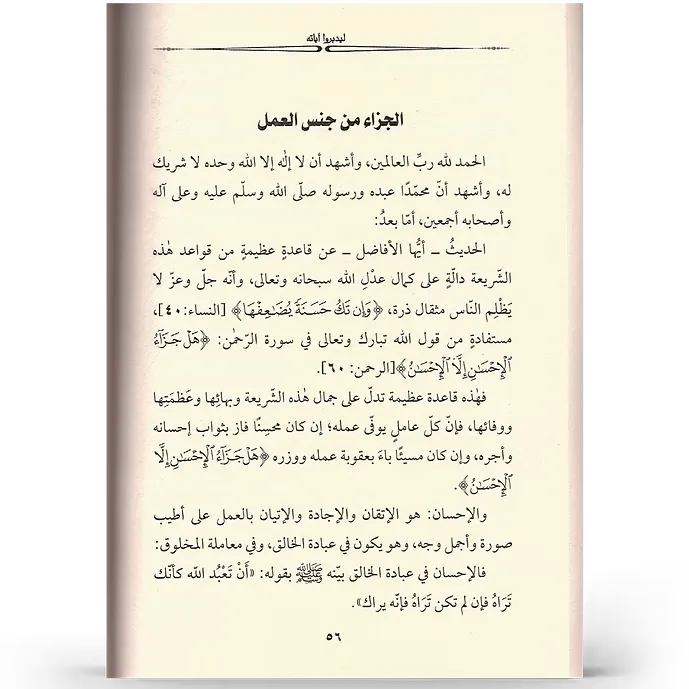 ليدبروا آياته
الجزاء من جنس العمل
الحمد لله ربِّ العالمين، وأشهد أن لا إلٰه إلا الله وحده لا شريك
له، وأشهد أنّ محمّدًا عبده ورسوله صلّى الله وسلّم عليه وعلى آله
وأصحابه أجمعين، أمّا بعدُ:
الحديثُ – أيُّها الأفاضل – عن قاعدةٍ عظيمةٍ من قواعد هٰذه
الشّريعة دالّةٍ على كمال عدْلِ الله سبحانه وتعالى، وأنّه جلّ وعزّ لا
يَظْلِم النّاس مثقال ذرة، ﴿وَإِن تَكُ حَسَنَةً يُضَٰعِفْهَا﴾ [النساء: ٤٠]،
مستفادةٍ من قول الله تبارك وتعالى في سورة الرّحمٰن: ﴿هَلْ جَزَآءُ
ٱلْإِحْسَٰنِ إِلَّا ٱلْإِحْسَٰنُ﴾[الرحمن: ٦٠].
فهٰذه قاعدة عظيمة تدلّ على جمال هٰذه الشّريعة وبهائِها وعَظمَتِها
ووفائها، فإنّ كلّ عاملٍ يوفّى عمله؛ إن كان محسِنًا فاز بثواب إحسانه
وأجره، وإن كان مسيئًا باءَ بعقوبة عمله ووزره ﴿هَلْ جَزَآءُ ٱلْإِحْسَٰنِ إِلَّا
ٱلْإِحْسَٰنُ﴾.
والإحسان: هو الإتقان والإجادة والإتيان بالعمل على أطيب
صورة وأجمل وجه، وهو يكون في عبادة الخالق، وفي معاملة المخلوق:
فالإحسان في عبادة الخالق بيّنه ﷺ بقوله: «أَنْ تَعْبُد الله كأنّك
تَرَاهُ فإن لم تكن تَرَاهُ فإنّه يراك».
٥٦